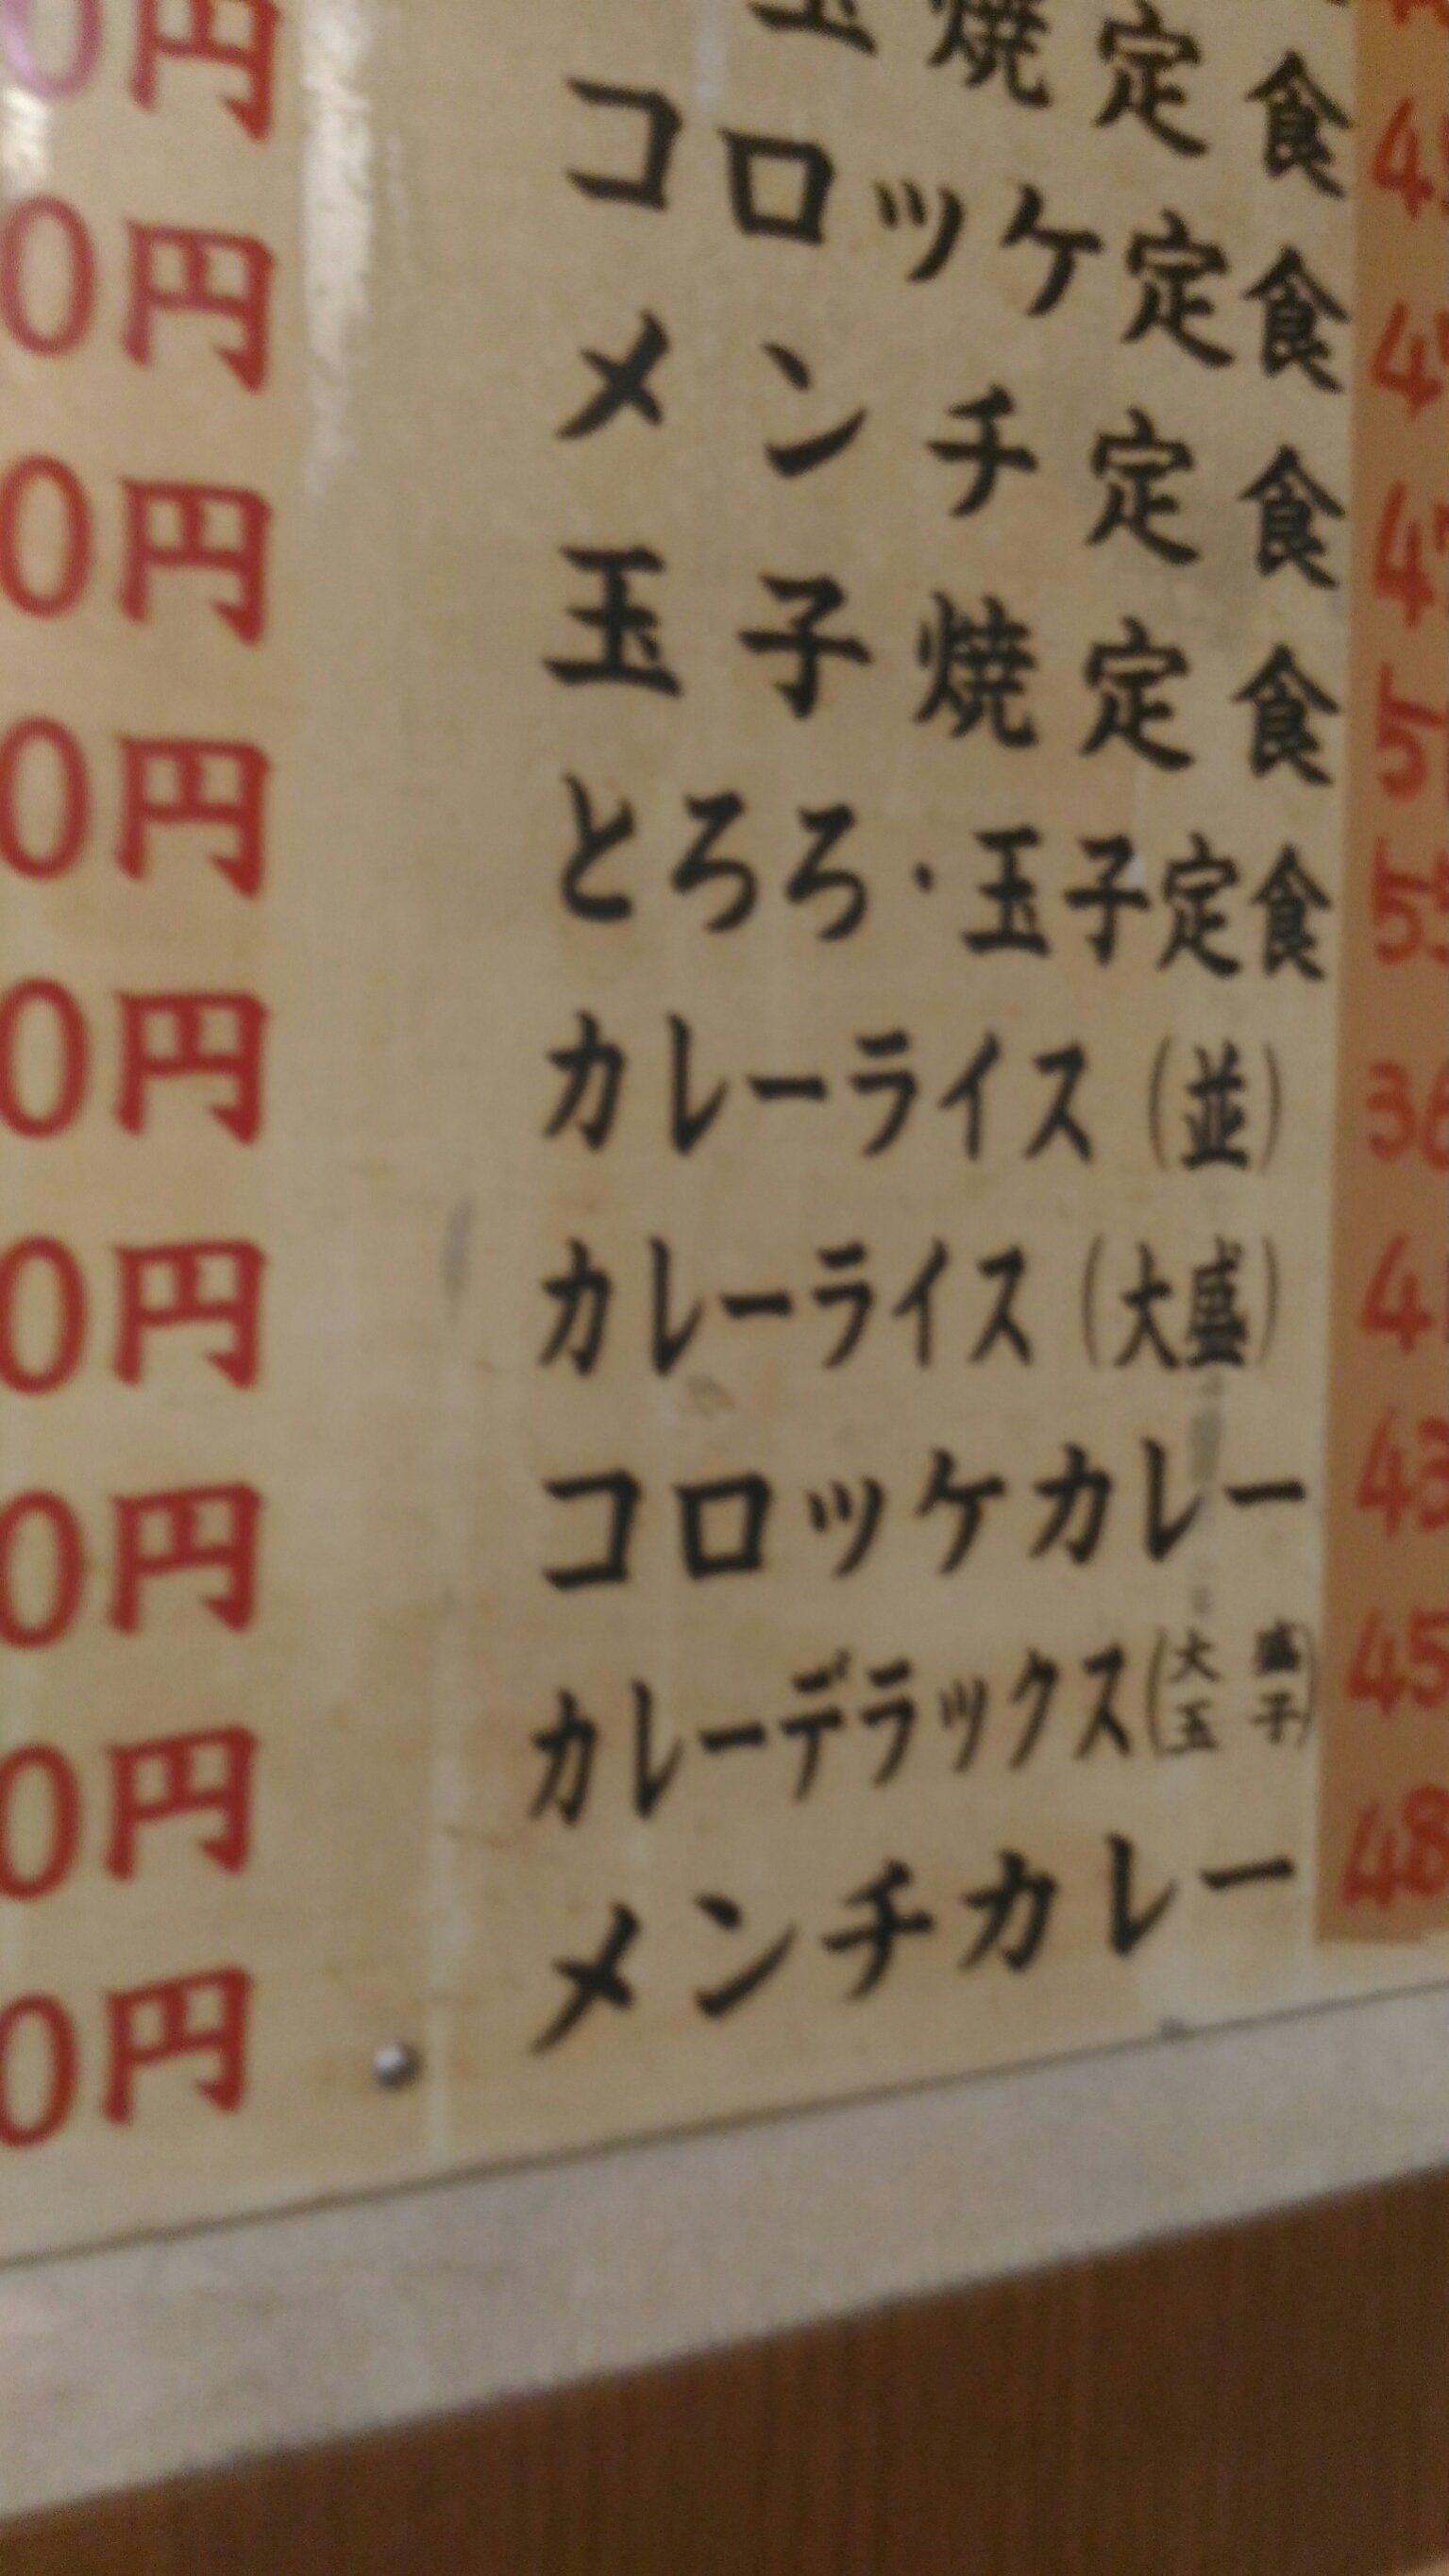 0円 玉焼定食 4
0円 コロッケ定食 4
0円 メンチ定食 4
0円 玉子焼定食 5
0円 とろろ・玉子定食 55
0円 カレーライス（並） 36
0円 カレーライス（大盛） 4
0円 コロッケカレー 43
0円 カレーデラックス（大盛 玉子） 45
0円 メンチカレー 48